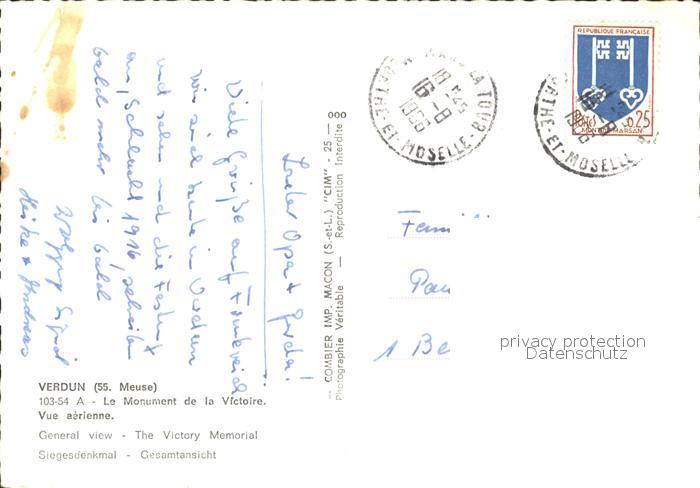 Lieber Opa + Gerda!
Viele Grüße aus Frankreich
wir sind heute in Verdun
und sehen uns die Festung
an, Schlacht 1916, schreiben
bald mehr bis bald
Heike + Andreas
VERDUN (55. Meuse)
103-54 A - Le Monument de la Victoire.
Vue aérienne.
General view - The Victory Memorial
Siegesdenkmal - Gesamtansicht
COMBIER IMP. MACON (S.-et-L.) "CIM" - 25 -
Photographie Véritable - Reproduction Interdite
LA TOUR
18 H45
16-8
1966
MEURTHE-ET-MOSELLE
REPUBLIQUE FRANÇAISE
POSTES 0,25
MONT-DE-MARSAN
16
1966
RTHE-ET-MOSELLE
Fami
Pau
1 Be
privacy protection
Datenschutz